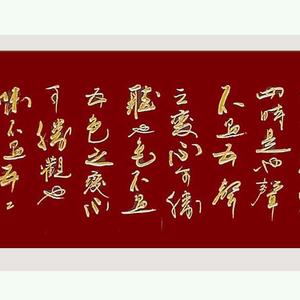 四時是也聲
不過五聲
之變不可勝
聽也色不過
五色之變不
可勝觀也
味不過五